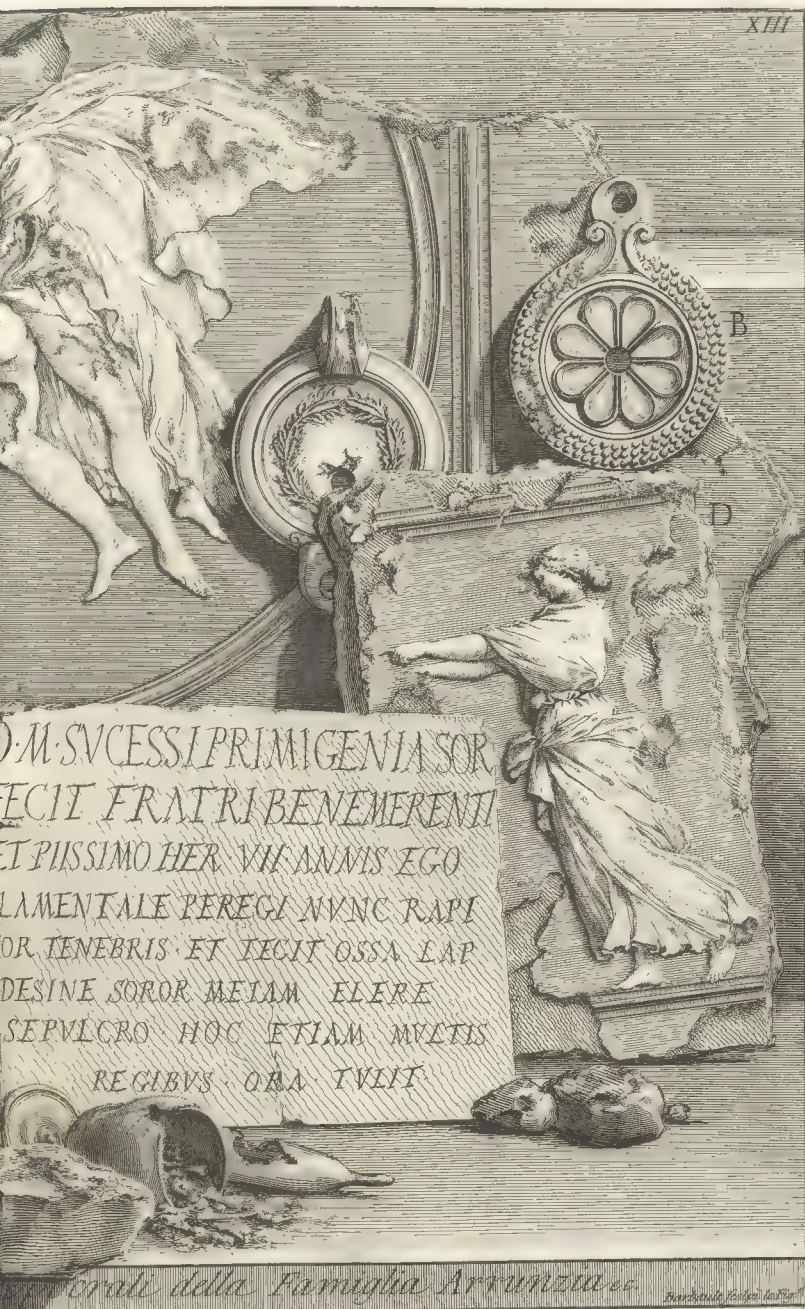 XIII
B
D
D·M·SVCESSI PRIMIGENIA SOR
FECIT FRATRI BENEMERENTI
ET PIISSIMO HER VII ANNIS EGO
LAMENTALE PEREGI NVNC RAPI
OR TENEBRIS ET TECIT OSSA LAP
DESINE SOROR ME IAM ELERE
SEPVLCRO HOC ETIAM MVLTIS
REGIBVS ORA TVLIT
polcrali della Famiglia Arrunzia ec.
Barbault Scolpì le Fig.